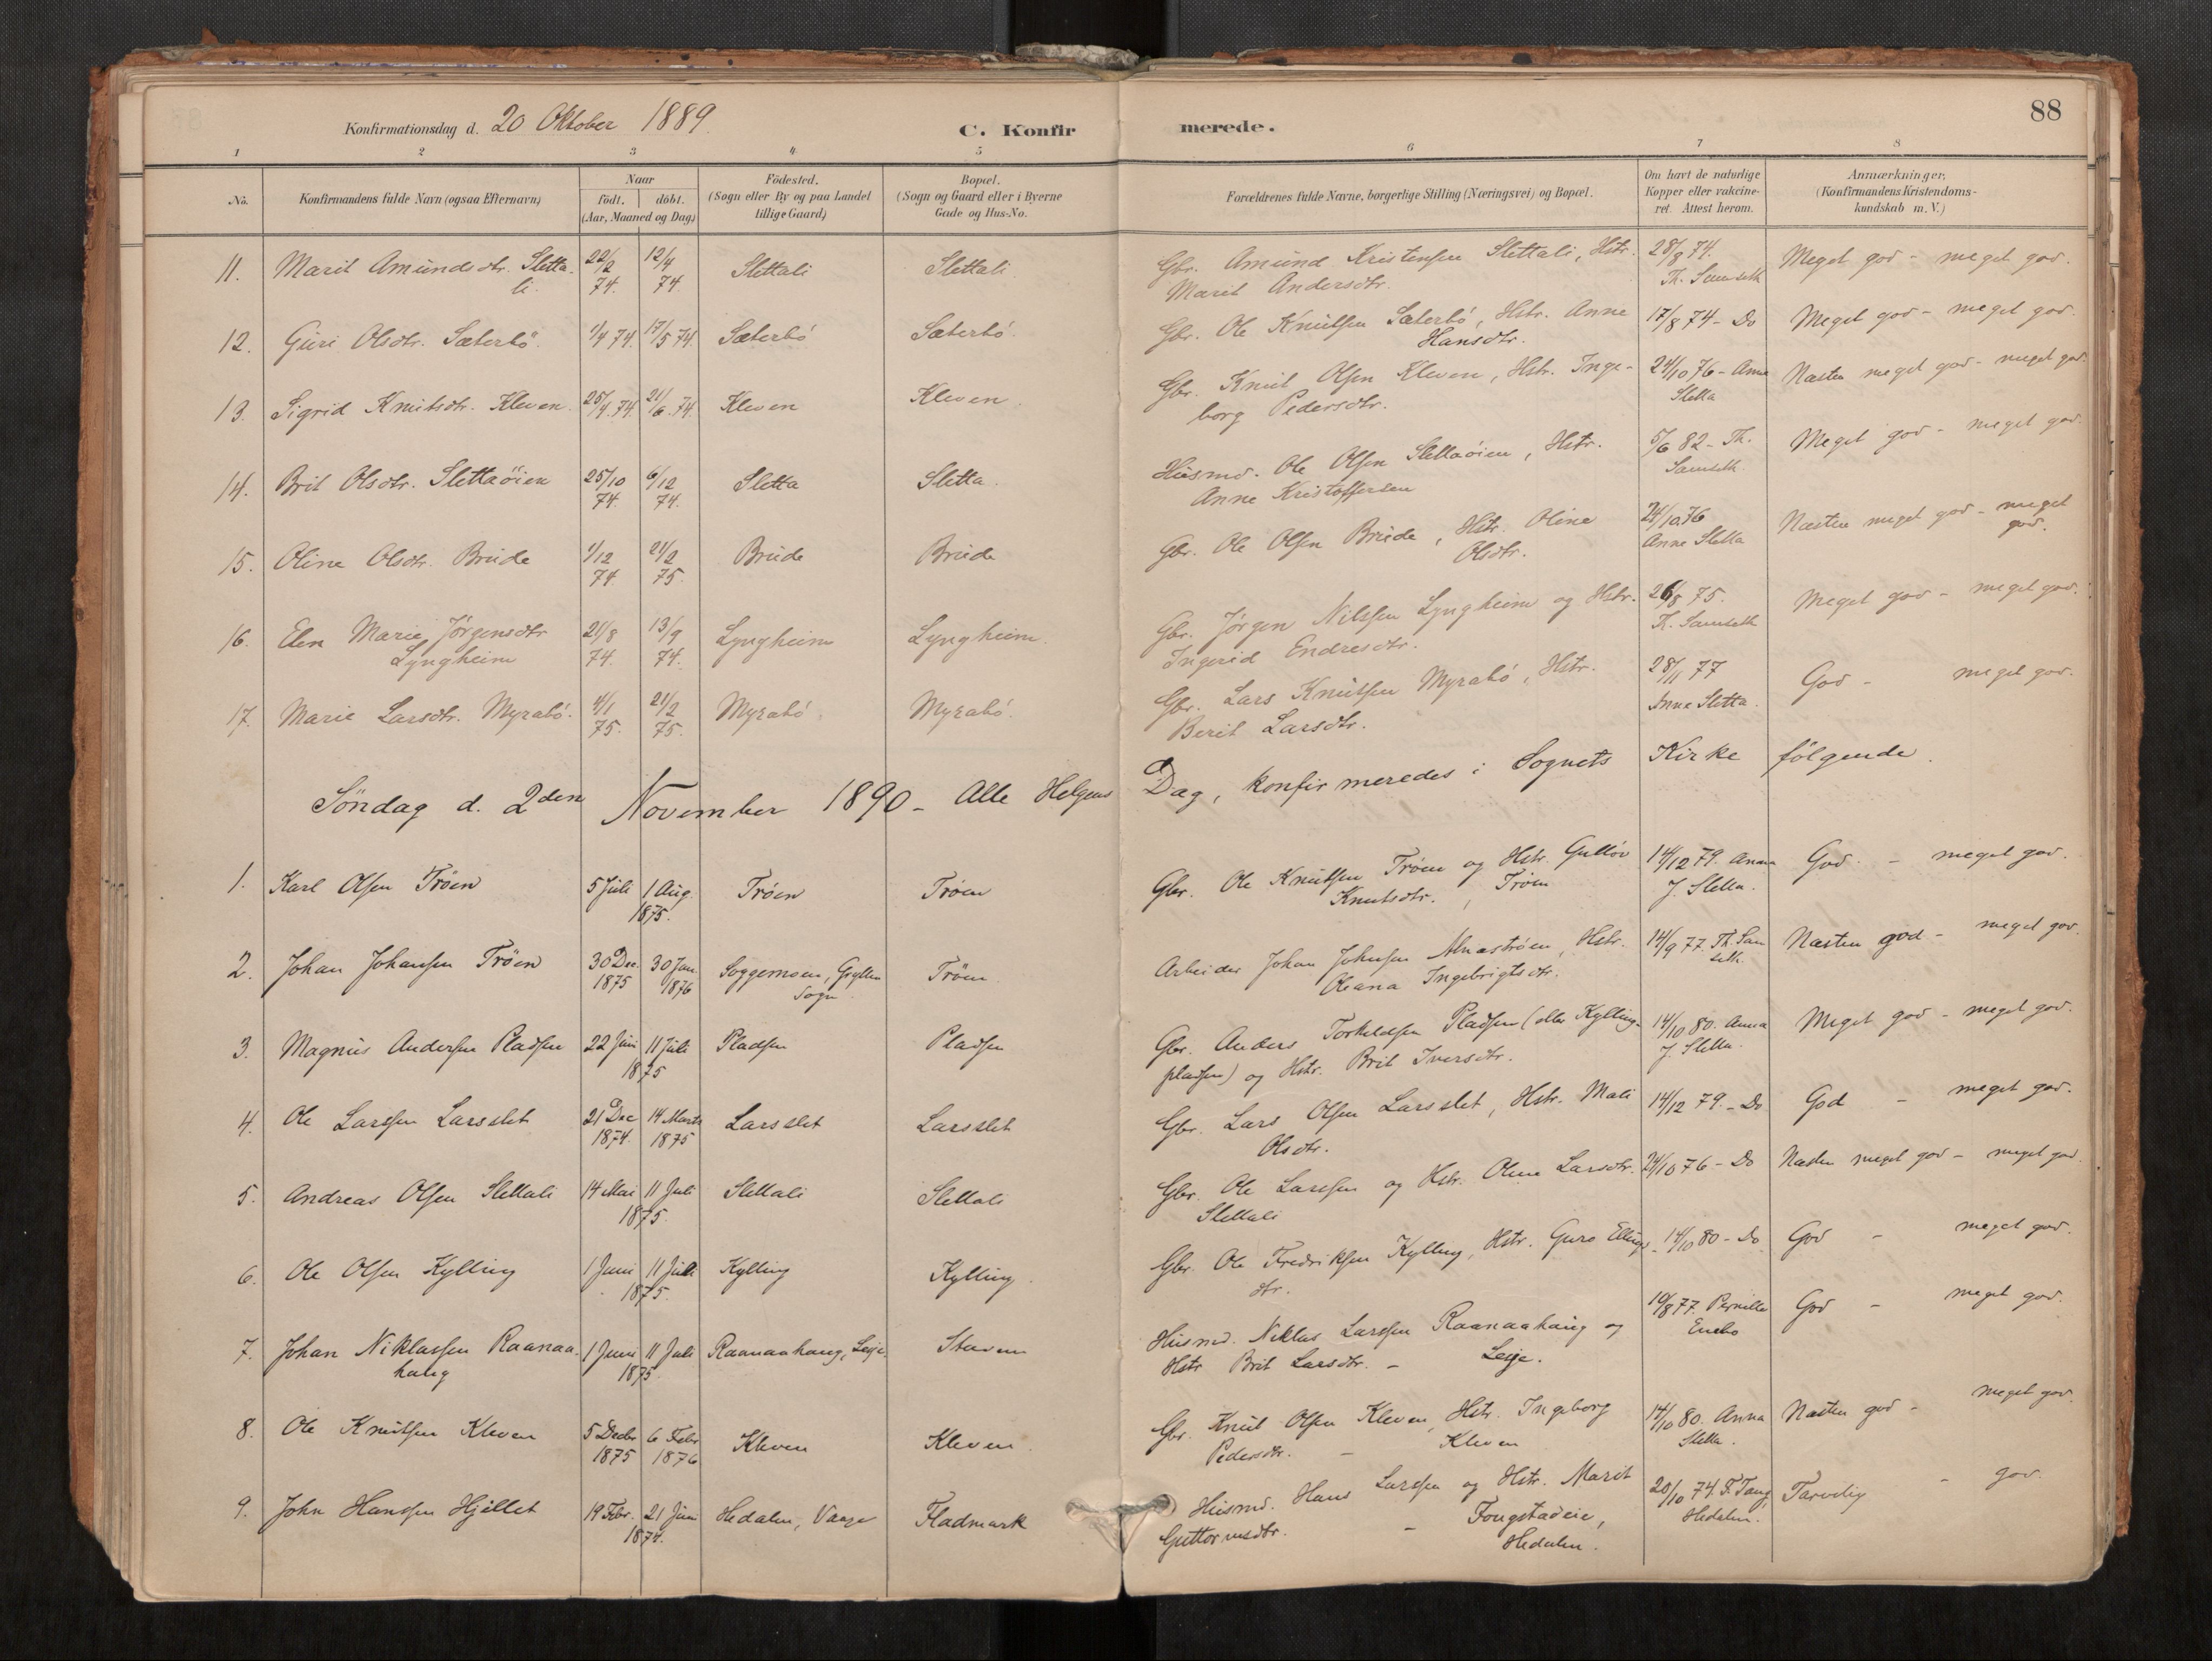 88
Konfirmationsdag d. 20 Oktober 1889. C. Konfirmerede.
1 2 3 4 5 6 7 8
No. Konfirmandens fulde Navn (ogsaa Efternavn) Naar födt. döbt. (Aar, Maaned og Dag) Födested. (Sogn eller By og paa Landet tillige Gaard) Bopæl. (Sogn og Gaard eller i Byerne Gade og Hus-No. Forældrenes fulde Navne, borgerlige Stilling (Næringsvei) og Bopæl. Om havt de naturlige Kopper eller vakcineret. Attest herom. Anmærkninger. (Konfirmandens Kristendomskundskab m. V.)
11. Marit Amundsdtr. Slettali. 22/2 74. 12/4 74. Slettali Slettali. Gbr. Amund Kristensen Slettali, Hstr. Marit Andersdtr. 28/8 74. Th. Samseth Meget god - meget god.
12. Guri Olsdtr. Sæterbö. 1/4 74. 17/5 74. Sæterbó Sæterbó. Gbr. Ole Knutsen Sæterbó, Hstr. Anne Hansdtr. 17/8 74 - Do Meget god - meget god.
13. Sigrid Knutsdtr. Kleven. 25/4 74. 21/6 74. Kleven Kleven. Gbr. Knut Olsen Kleven, Hstr. Ingeborg Pedersdtr. 24/10 76 - Anne Sletta Næsten meget god - meget god.
14. Brit Olsdtr. Slettaöien 25/10 74. 6/12 74. Sletta Sletta. Husmd. Ole Olsen Slettaöien, Hstr. Anne Kristoffersen 5/6 82 - Th. Samseth. Meget god - meget god.
15. Oline Olsdtr. Brude 1/12 74. 21/2 75. Brude Brude Gbr. Ole Olsen Brude, Hstr. Oline Olsdtr. 24/10 76 Anne Sletta Næsten meget god - meget god.
16. Elen Marie Jørgensdtr Lyngheim 21/8 74. 13/9 74. Lyngheim Lyngheim. Gbr. Jørgen Nilssen Lyngheim og Hstr. Ingerid Endresdtr. 26/8 75. Th. Samseth Meget god - meget god.
17. Marie Larsdtr. Myrabó. 4/1 75. 21/2 75. Myrabó. Myrabó. Gbr. Lars Knutsen Myrabó, Hstr. Berit Larsdtr. 28/11 77 Anne Sletta. God - meget god.
Söndag d. 2den November 1890 - Alle Helgens Dag, konfirmeredes i Sognets Kirke følgende.
1. Karl Olsen Tröen 5 Juli 1 Aug. 1875. Tröen Tröen Gbr. Ole Knutsen Tröen og Hstr. Gulløv Knutsdtr., Tröen 14/12 79. Anna J. Sletta. God - meget god.
2. Johan Johansen Tröen 30 Dec. 1875 30 Jan. 1876 Soggemoen, Grytten Sogn. Tröen. Arbeider Johan Johnsen Alnæströen, Hstr. Oleana Ingebrigtsdtr. 14/9 77. Th. Samseth. Næsten god - meget god.
3. Magnus Andersen Pladsen 22 Juni 11 Juli 1875 Pladsen Pladsen Gbr. Anders Torkeldsen Pladsen (eller Kyllingpladsen) og Hstr. Brit Iversdtr. 14/10 80. Anna J. Sletta. Meget god - meget god.
4. Ole Larssen Larsslet 21 Dec 1874. 14 Marts 1875 Larsslet Larsslet Gbr. Lars Olsen Larsslet, Hstr. Mali Olsdtr. 14/12 79. - Do God - meget god.
5. Andreas Olsen Slettali 14 Mai 11 Juli 1875. Slettali Slettali Gbr. Ole Larssen og Hstr. Oline Larsdtr. Slettali 24/10 76 - Do Næsten meget god - meget god.
6. Ole Olsen Kylling 1 Juni 11 Juli 1875. Kylling Kylling. Gbr. Ole Fredriksen Kylling, Hstr. Guro Ellingsdtr. 14/10 80 - Do God - meget god.
7. Johan Niklassen Raanaahaug 1 Juni 11 Juli 1875. Raanaahaug, Lesje. Staven Husmd. Niklas Larssen Raanaahaug og Hstr Brit Larsdtr. - Lesje. 10/8 77. Pernille Enebo God - meget god.
8. Ole Knutsen Kleven 5 Decbr 1875 6 Febr 1876 Kleven Kleven. Gbr. Knut Olsen Kleven, Hstr. Ingeborg Pedersdtr. - Kleven 14/10 80. Anna Sletta. Næsten god - meget god.
9. John Hanssen Hjellet 19 Febr. 21 Juni 1874. Hedalen, Vaage Fladmark Husmd. Hans Larssen og Hstr. Marit Guttormsdtr. - Fougstadeie, Hedalen. 20/10 74 F. Tang, Hedalen. Tarvelig - god.